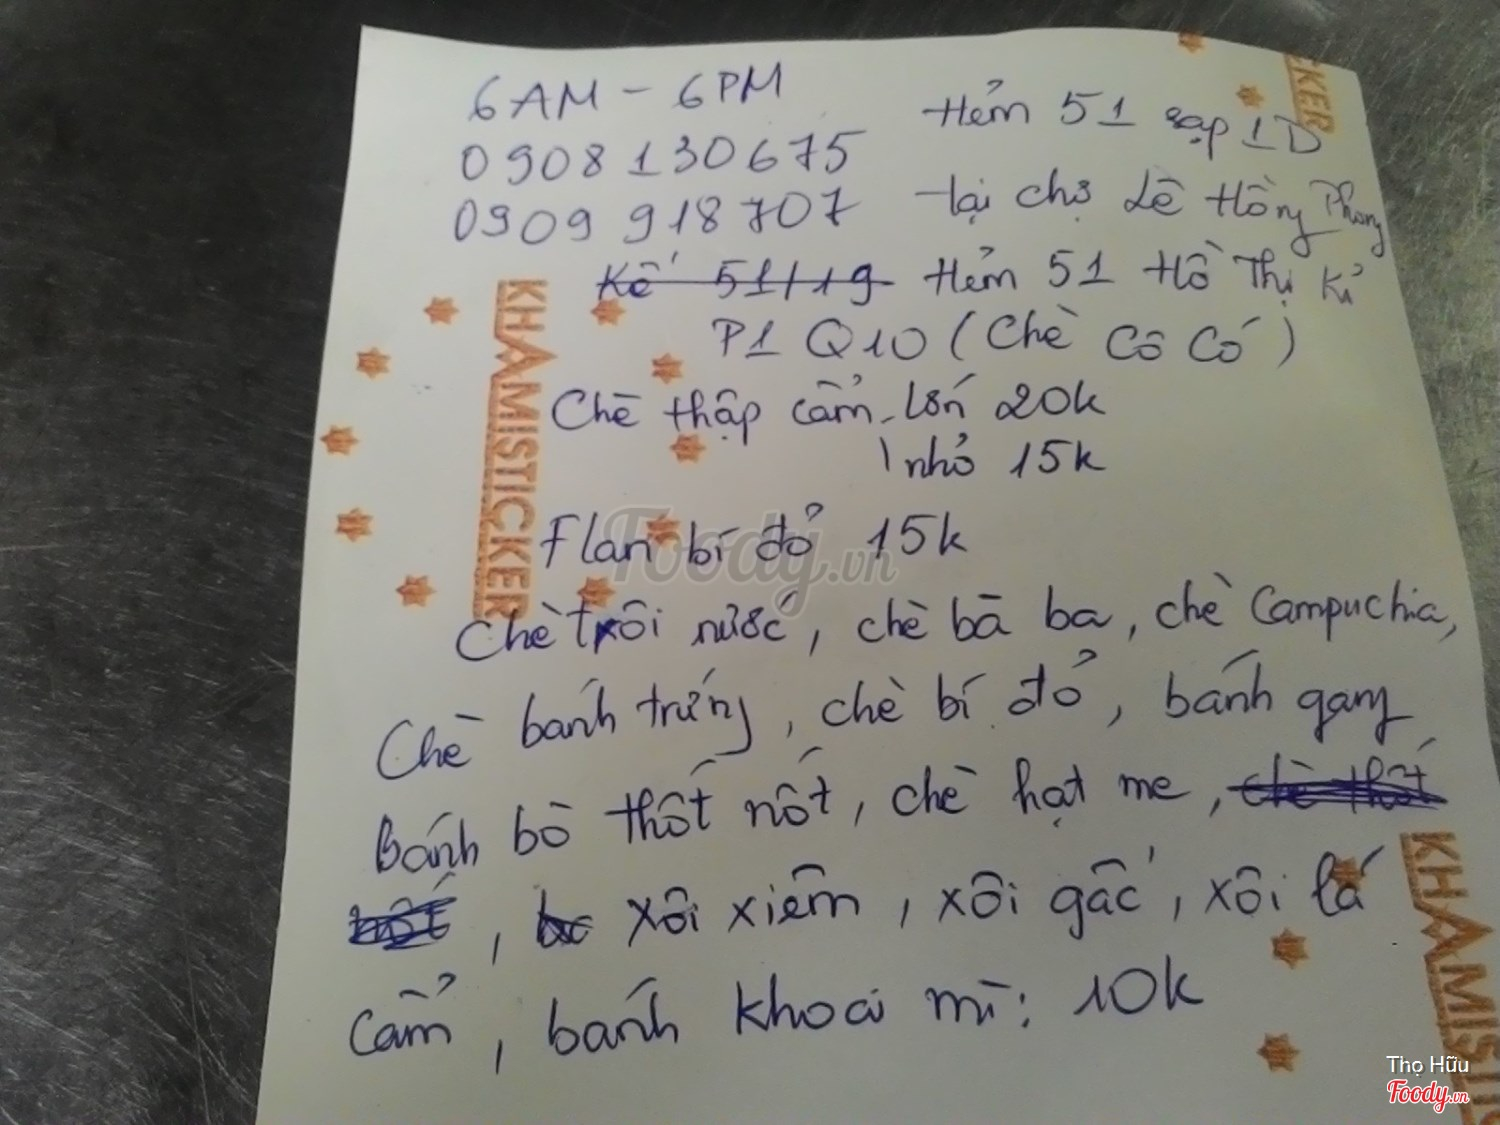 6AM - 6PM
0908130675
0909 918707
Hẻm 51 sạp 1D
tại chợ Lê Hồng Phong
Kế 51/19 Hẻm 51 Hồ Thị Kỉ
P1 Q10 (Chè Cô Có)
Chè thập cẩm lớn 20k
nhỏ 15k
Flan bí đỏ 15k
Chè trôi nước, chè bà ba, chè Campuchia,
Chè bánh trứng, chè bí đỏ, bánh gang
Bánh bò thốt nốt, chè hạt me, chè thốt
nốt, xôi xiêm, xôi gấc, xôi lá
cẩm, bánh khoai mì: 10k
KHAMISTICKER
CKER
KHAMISTIC
Foody.vn
Thọ Hữu
Foody.vn